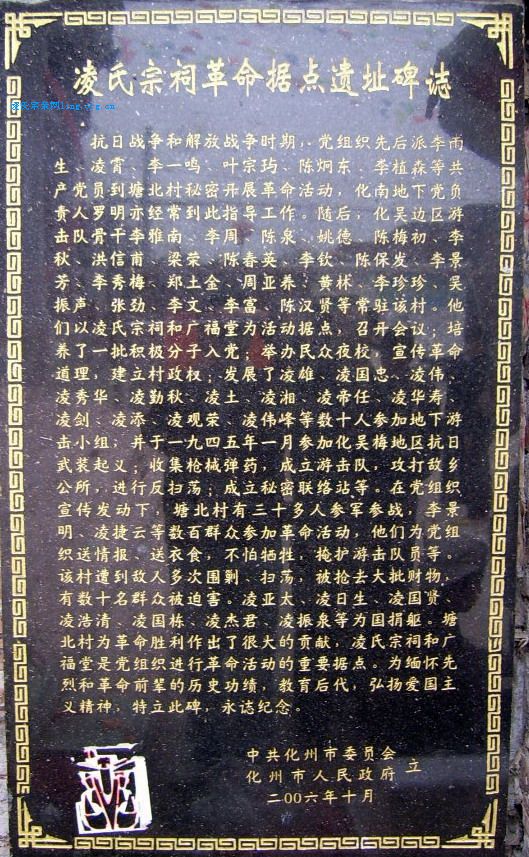 凌氏宗祠革命据点遗址碑志
凌氏宗亲网ling.zg.cn
抗日战争和解放战争时期,党组织先后派李雨
生、凌霄、李一鸣、叶宗玙、陈炯东、李植森等共
产党员到塘北村秘密开展革命活动,化南地下党负
责人罗明亦经常到此指导工作。随后,化吴边区游
击队骨干李雅南、李周、陈泉、姚德、陈梅初、李
秋、洪信甫、梁荣、陈春英、李钦、陈保发、李景
芳、李秀梅、郑土金、周亚养、黄林、李珍珍、吴
振声、张劲、李文、李富、陈汉贤等常驻该村。他
们以凌氏宗祠和广福堂为活动据点,召开会议;培
养了一批积极分子入党;举办民众夜校,宣传革命
道理,建立村政权;发展了凌雄、凌国忠、凌伟、
凌秀华、凌勤秋、凌土、凌湘、凌帝任、凌华寿、
凌剑、凌添、凌观荣、凌伟峰等数十人参加地下游
击小组,并于一九四五年一月参加化吴梅地区抗日
武装起义;收集枪械弹药,成立游击队,攻打敌乡
公所,进行反扫荡;成立秘密联络站等。在党组织
宣传发动下,塘北村有三十多人参军参战,李景
明、凌捷云等数百群众参加革命活动,他们为党组
织送情报、送衣食,不怕牺牲,掩护游击队员等。
该村遭到敌人多次围剿、扫荡,被抢去大批财物,
有数十名群众被迫害。凌亚太、凌日生、凌国贤、
凌浩清、凌国栋、凌杰君、凌振泉等为国捐躯。塘
北村为革命胜利作出了很大的贡献,凌氏宗祠和广
福堂是党组织进行革命活动的重要据点。为缅怀先
烈和革命前辈的历史功绩,教育后代,弘扬爱国主
义精神,特立此碑,永志纪念。
中共化州市委员会
化州市人民政府 立
二00六年十月